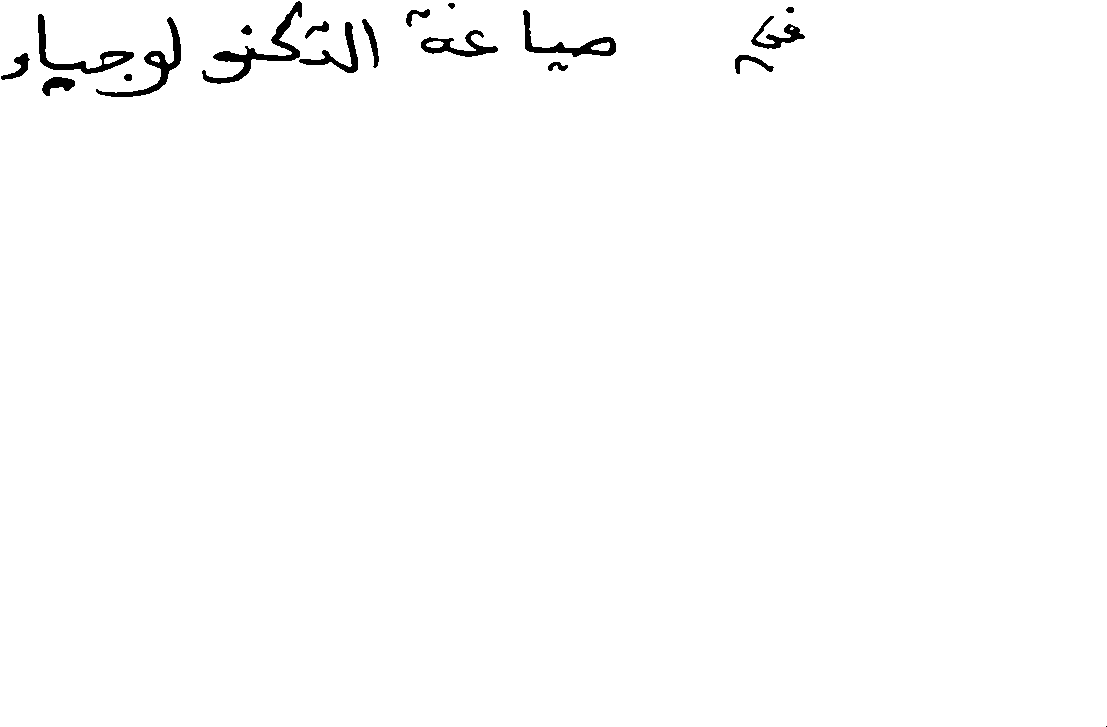 في صياغة التكنولوجيا،